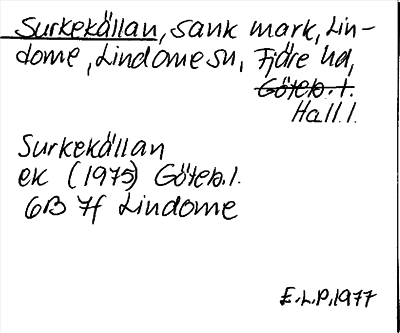 Surkekällan, sank mark, Lin-
dome, Lindome sn, Fjäre hd,
Göteb. l.
Hall. l.
Surkekällan
ek (1975) Göteb. l.
6B 7f Lindome
E.L.P. 1977